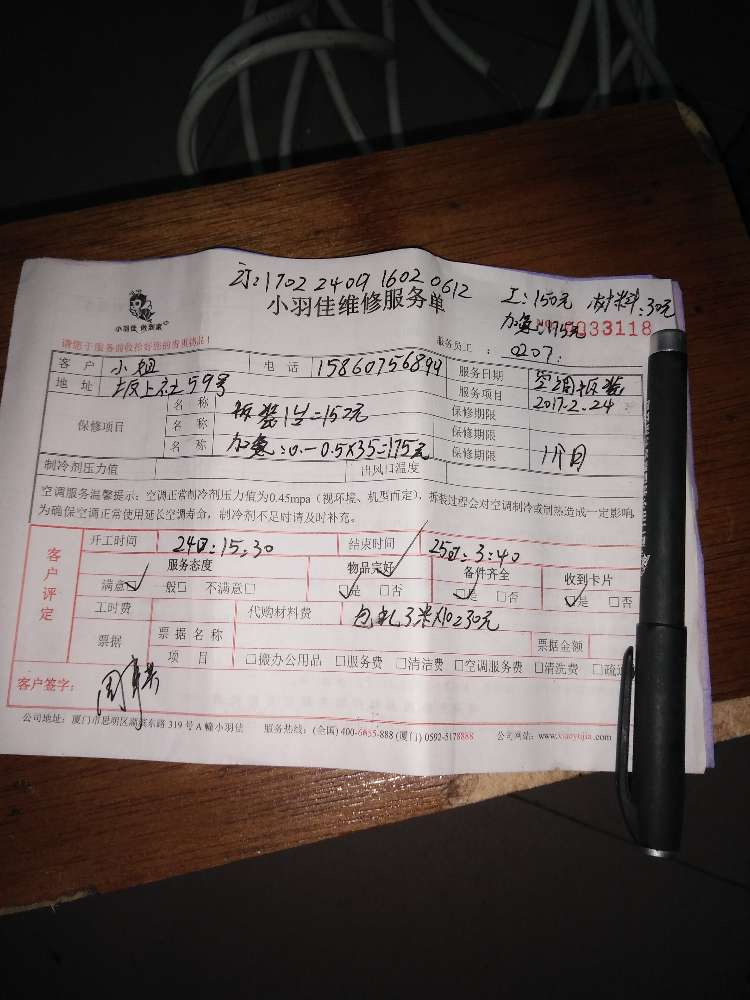 订:1702 2409 1602 0612
工:150元 材料:30元
小羽佳维修服务单
加氟:175元
0033118
小羽佳 做到家
请您于服务前收拾好您的贵重物品!
服务员工: 0207
客户 小姐 电话 15860756899 服务日期 空调拆装
地址 坂上社59号 服务项目 2017.2.24
保修项目 名称 拆装1台=150元 保修期限
名称 保修期限
名称 加氟:0.-0.5X35=175元 保修期限 1个月
制冷剂压力值 出风口温度
空调服务温馨提示:空调正常制冷剂压力值为0.45mpa(视环境、机型而定),拆装过程会对空调制冷或制热造成一定影响,
为确保空调正常使用延长空调寿命,制冷剂不足时请及时补充。
客户评定
开工时间 24日:15:30 结束时间 25日:3:40
服务态度 物品完好 备件齐全 收到卡片
满意☑ 一般□ 不满意□ ☑是 □否 ☑是 □否 ☑是 □否
工时费 代购材料费 包扎3米X10=30元
票据 票据名称 票据金额
项目 □搬办公用品 □服务费 □清洁费 □空调服务费 □清洗费 □疏通
客户签字:
公司地址:厦门市思明区湖滨东路 319 号 A 幢小羽佳 服务热线:(全国) 400-6655-888 (厦门) 0592-5178888 公司网站:www.xiaoyujia.com